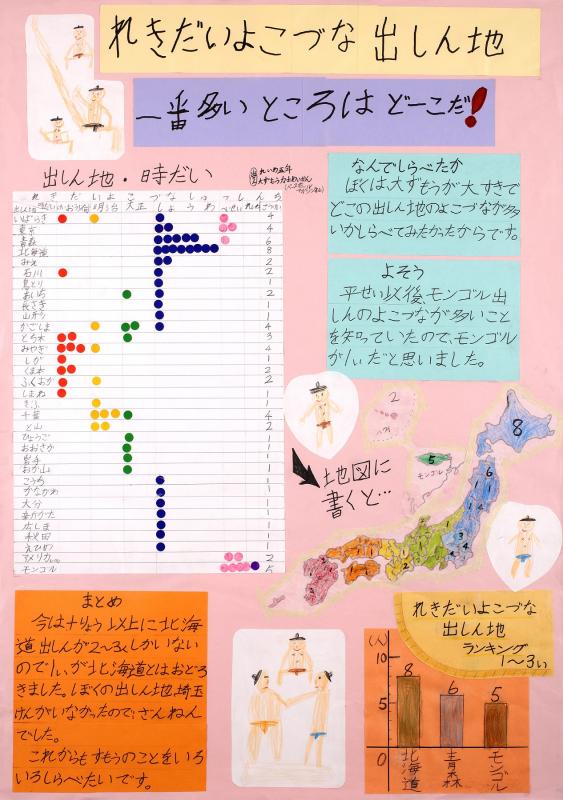 れきだいよこづな出しん地
一番多いところはどーこだ!
出しん地・時だい
なんでしらべたか
ぼくは大ずもうが大すきで
どこの出しん地のよこづなが多
いかしらべてみたかったからです。
よそう
平せい以後モンゴル出
しんのよこづなが多いこと
を知っていたので、モンゴル
が1いだと思いました。
いばらき 4
東京 4
青森 6
北海道 8
みえ 2
石川 2
鳥とり 1
あいち 2
長さき 1
山がた 1
かごしま 4
とち木 3
みやぎ 4
しが 1
くま本 2
ふくおか 2
しまね 1
ぎふ 1
千葉 4
と山 2
ひょうご 1
おおさか 1
岩手 1
おか山 1
こうち 1
かながわ 1
大分 1
広しま 1
秋田 1
えひめ 1
アメリカ 2
モンゴル 5
地図に
書くと…
2
ハワイ
5
モンゴル
8
まとめ
今は十りょう以上に北海
道出しんが2〜3人しかいない
ので1いが北海道とはおどろ
きました。ぼくの出しん地、埼玉
けんがいなかったので、ざんねん
でした。
これからもすもうのことをいろ
いろしらべたいです。
れきだいよこづな
出しん地
ランキング
1〜3い
(人)
10
5
0
8
6
5
北海道
青森
モンゴル